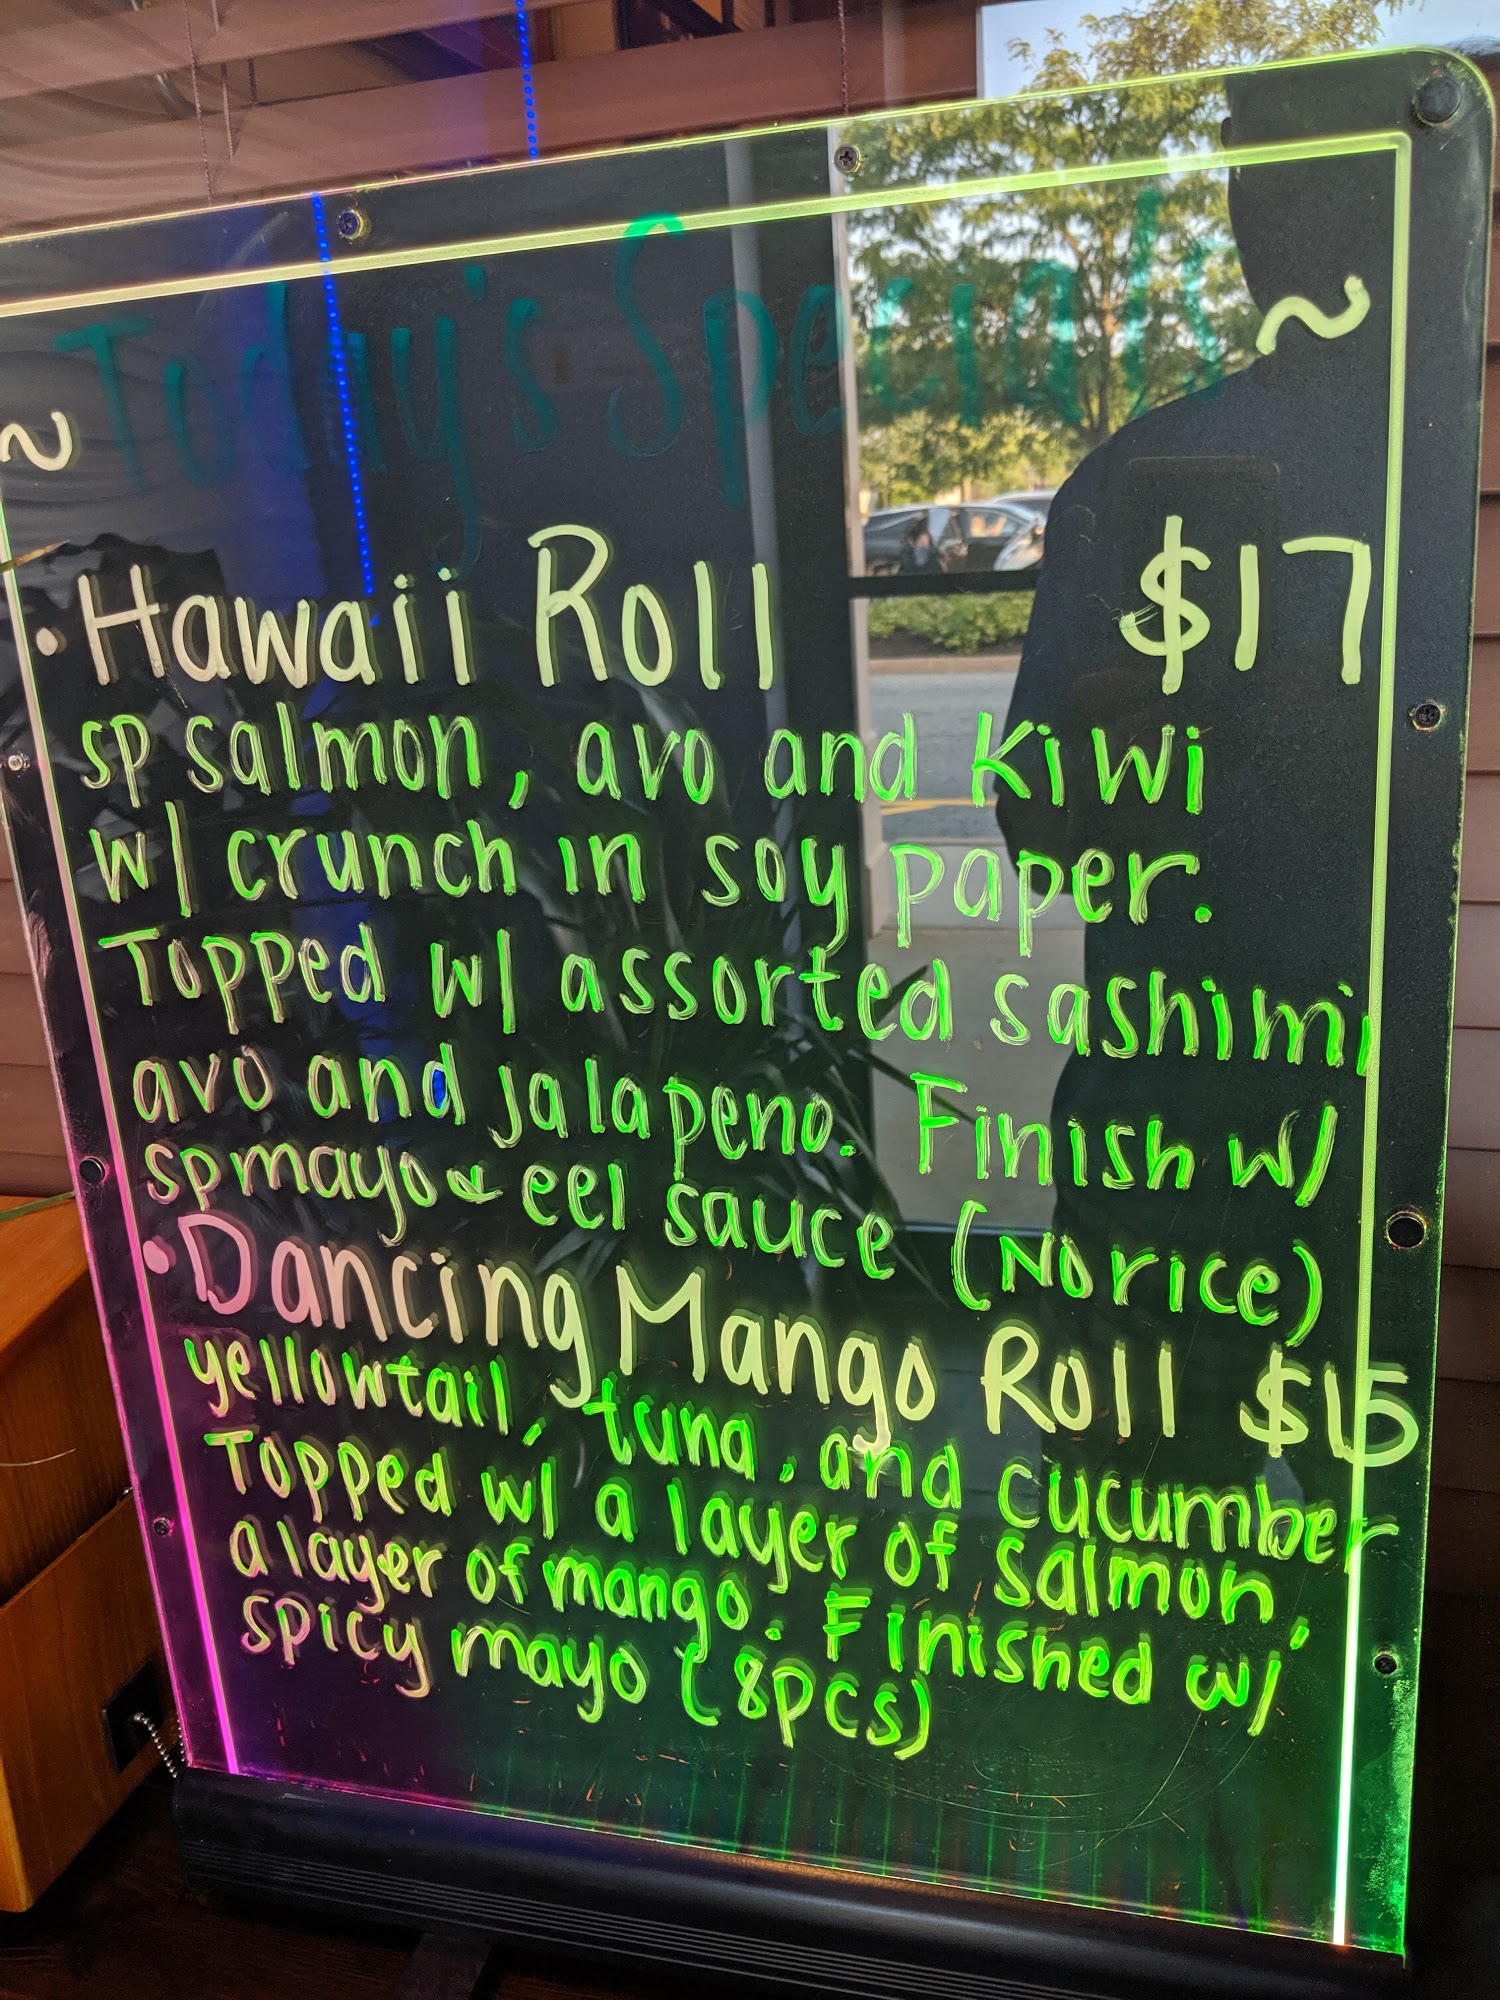 ~ Today's Specials ~
• Hawaii Roll $17
sp salmon, avo and Kiwi
w/ crunch in soy paper.
Topped w/ assorted sashimi
avo and jalapeno. Finish w/
spmayo & eel sauce (No rice)
• Dancing Mango Roll $15
yellowtail, tuna, and cucumber
Topped w/ a layer of salmon,
a layer of mango. Finished w/
spicy mayo (8pcs)